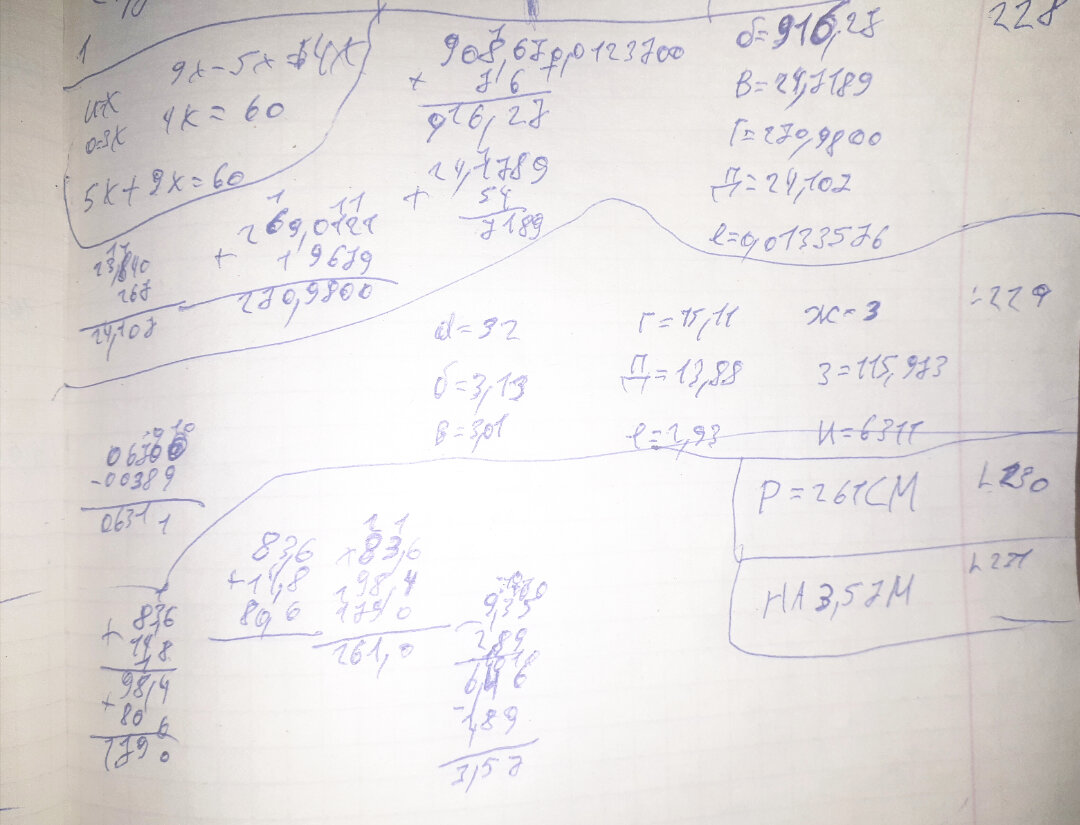 228
1
9x-5x=4x
4x=60
0=3x
5x+9x=60
908,67
+ 7,6
916,27
0,0123700
24,1789
+ 54
7189
269,0121
+ 1 9679
270,9800
23,840
267
24,107
б=916,27
в=24,7189
г=270,9800
д=24,107
е=0,0133576
229
а=32
б=3,13
в=3,01
г=15,11
д=13,88
е=2,93
ж=3
з=115,973
и=6311
06700
-00389
06311
230
P=261СМ
231
НА 3,57М
83,6
+14,8
80,6
83,6
98,4
179 0
261,0
83,6
+ 14,8
98,4
+ 80 6
179 0
9,35
- 2,89
6,46
-1,89
3,57